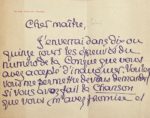 Cher maître,
J'enverrai dans dix ou
quinze jours les épreuves du
numéro de la Conque que vous
avez accepté d'inaugurer. Voulez
vous me permettre de vous demander
si vous avez fait la Chanson
que vous m'avez promise et